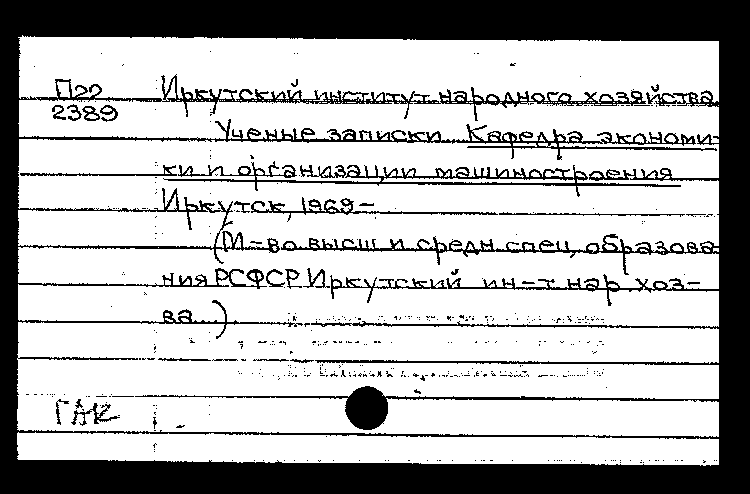 П22 Иркутский институт народного хозяйства
2389
Ученые записки. Кафедра экономи-
ки и организации машиностроения
Иркутск, 1969-
(М-во высш и средн. спец. образова-
ния РСФСР Иркутский ин-т нар. хоз-
ва...)
ГАК